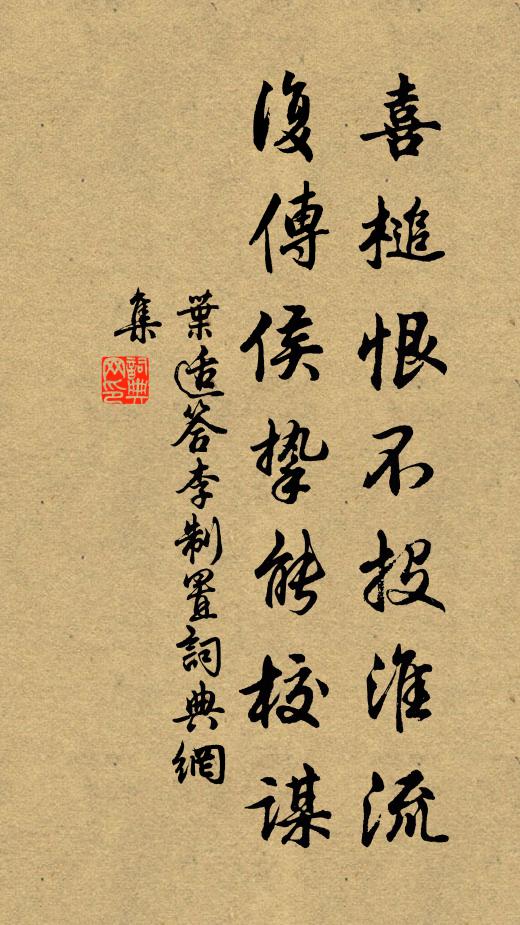 喜槌恨不投淮流
復傳侯摯能校謀
葉适答李制置詞典網
集
詞典
网印